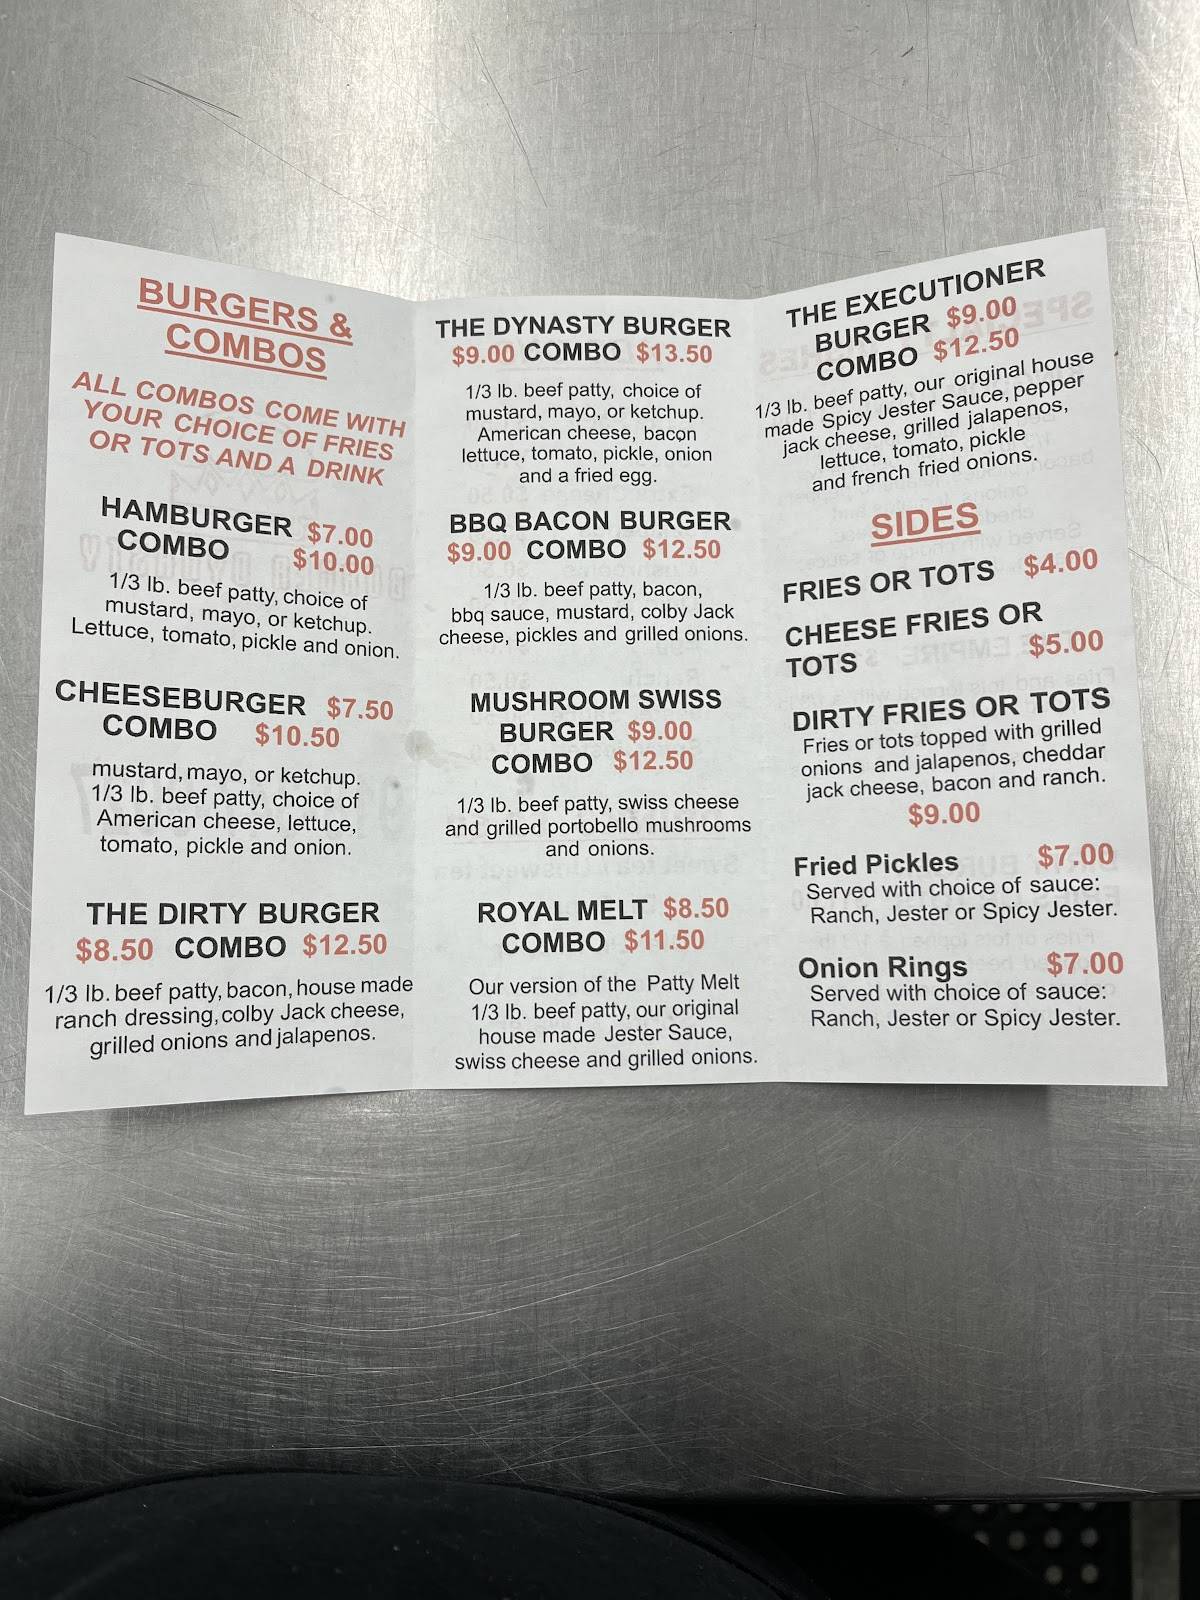 BURGERS &
COMBOS
ALL COMBOS COME WITH
YOUR CHOICE OF FRIES
OR TOTS AND A DRINK
HAMBURGER $7.00
COMBO $10.00
1/3 lb. beef patty, choice of
mustard, mayo, or ketchup.
Lettuce, tomato, pickle and onion.
CHEESEBURGER $7.50
COMBO $10.50
mustard, mayo, or ketchup.
1/3 lb. beef patty, choice of
American cheese, lettuce,
tomato, pickle and onion.
THE DIRTY BURGER
$8.50 COMBO $12.50
1/3 lb. beef patty, bacon, house made
ranch dressing, colby Jack cheese,
grilled onions and jalapenos.
THE DYNASTY BURGER
$9.00 COMBO $13.50
1/3 lb. beef patty, choice of
mustard, mayo, or ketchup.
American cheese, bacon
lettuce, tomato, pickle, onion
and a fried egg.
BBQ BACON BURGER
$9.00 COMBO $12.50
1/3 lb. beef patty, bacon,
bbq sauce, mustard, colby Jack
cheese, pickles and grilled onions.
MUSHROOM SWISS
BURGER $9.00
COMBO $12.50
1/3 lb. beef patty, swiss cheese
and grilled portobello mushrooms
and onions.
ROYAL MELT $8.50
COMBO $11.50
Our version of the Patty Melt
1/3 lb. beef patty, our original
house made Jester Sauce,
swiss cheese and grilled onions.
THE EXECUTIONER
BURGER $9.00
COMBO $12.50
1/3 lb. beef patty, our original house
made Spicy Jester Sauce, pepper
jack cheese, grilled jalapenos,
lettuce, tomato, pickle
and french fried onions.
SIDES
FRIES OR TOTS $4.00
CHEESE FRIES OR
TOTS $5.00
DIRTY FRIES OR TOTS
Fries or tots topped with grilled
onions and jalapenos, cheddar
jack cheese, bacon and ranch.
$9.00
Fried Pickles $7.00
Served with choice of sauce:
Ranch, Jester or Spicy Jester.
Onion Rings $7.00
Served with choice of sauce:
Ranch, Jester or Spicy Jester.